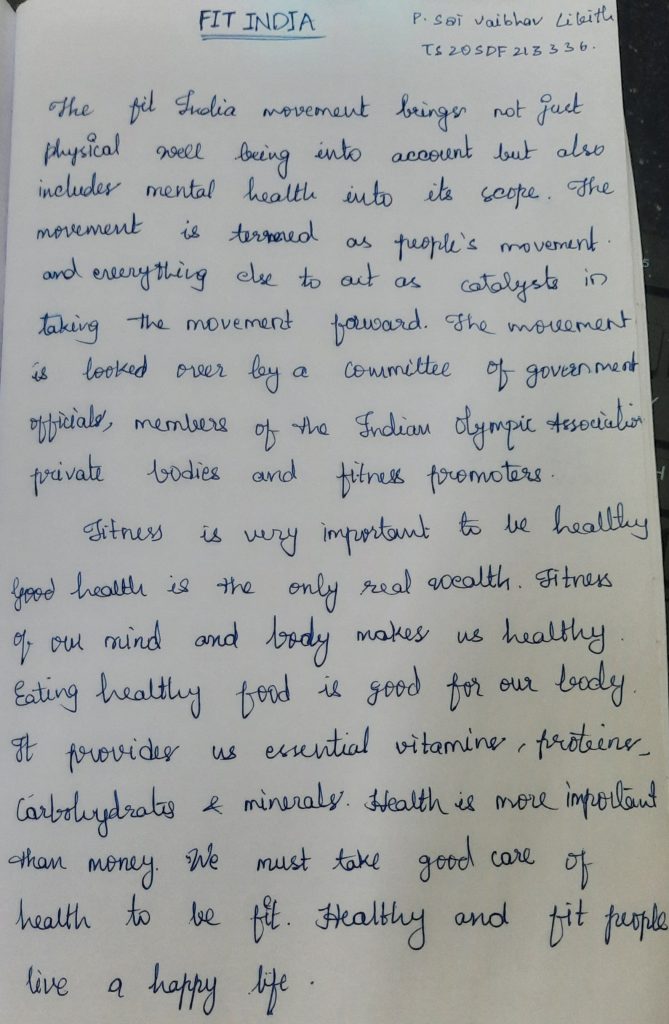 FIT INDIA
P. Sai Vaibhav Likith
TS20SDF213336.
The fit India movement brings not just
physical well being into account but also
includes mental health into its scope. The
movement is termed as people's movement.
and everything else to act as catalysts in
taking the movement forward. The movement
is looked over by a committee of government
officials, members of the Indian Olympic Association
private bodies and fitness promoters.
Fitness is very important to be healthy
Good health is the only real wealth. Fitness
of our mind and body makes us healthy.
Eating healthy food is good for our body.
It provides us essential vitamins, proteins,
Carbohydrates & minerals. Health is more important
than money. We must take good care of
health to be fit. Healthy and fit people
live a happy life.